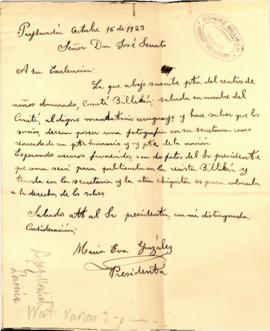 Paysandú Octubre 15 de 1923
Señor Don José Serrato
A su Exelencia:
La que abajo suscribe pta. del centro de
niños dominado, Comité Billikén, saluda en nombre del
Comité, al digno mandatario uruguayo y hace saber que los
socios desean poseer una fotografía en su secretaría como
recuerdo de su pte honorario y pte de la nación
Esperando vernos favorecidos con dos fotos del Sr presidente
que una será para publicarla en la revista Billikén y
tenerla en la secretaría y la otra chiquita es para colocarla
a la derecha de los
Saludo al Sr presidente con mi distinguida
Consideración;
María Eva González
Presidenta
COMITÉ BILLIKEN